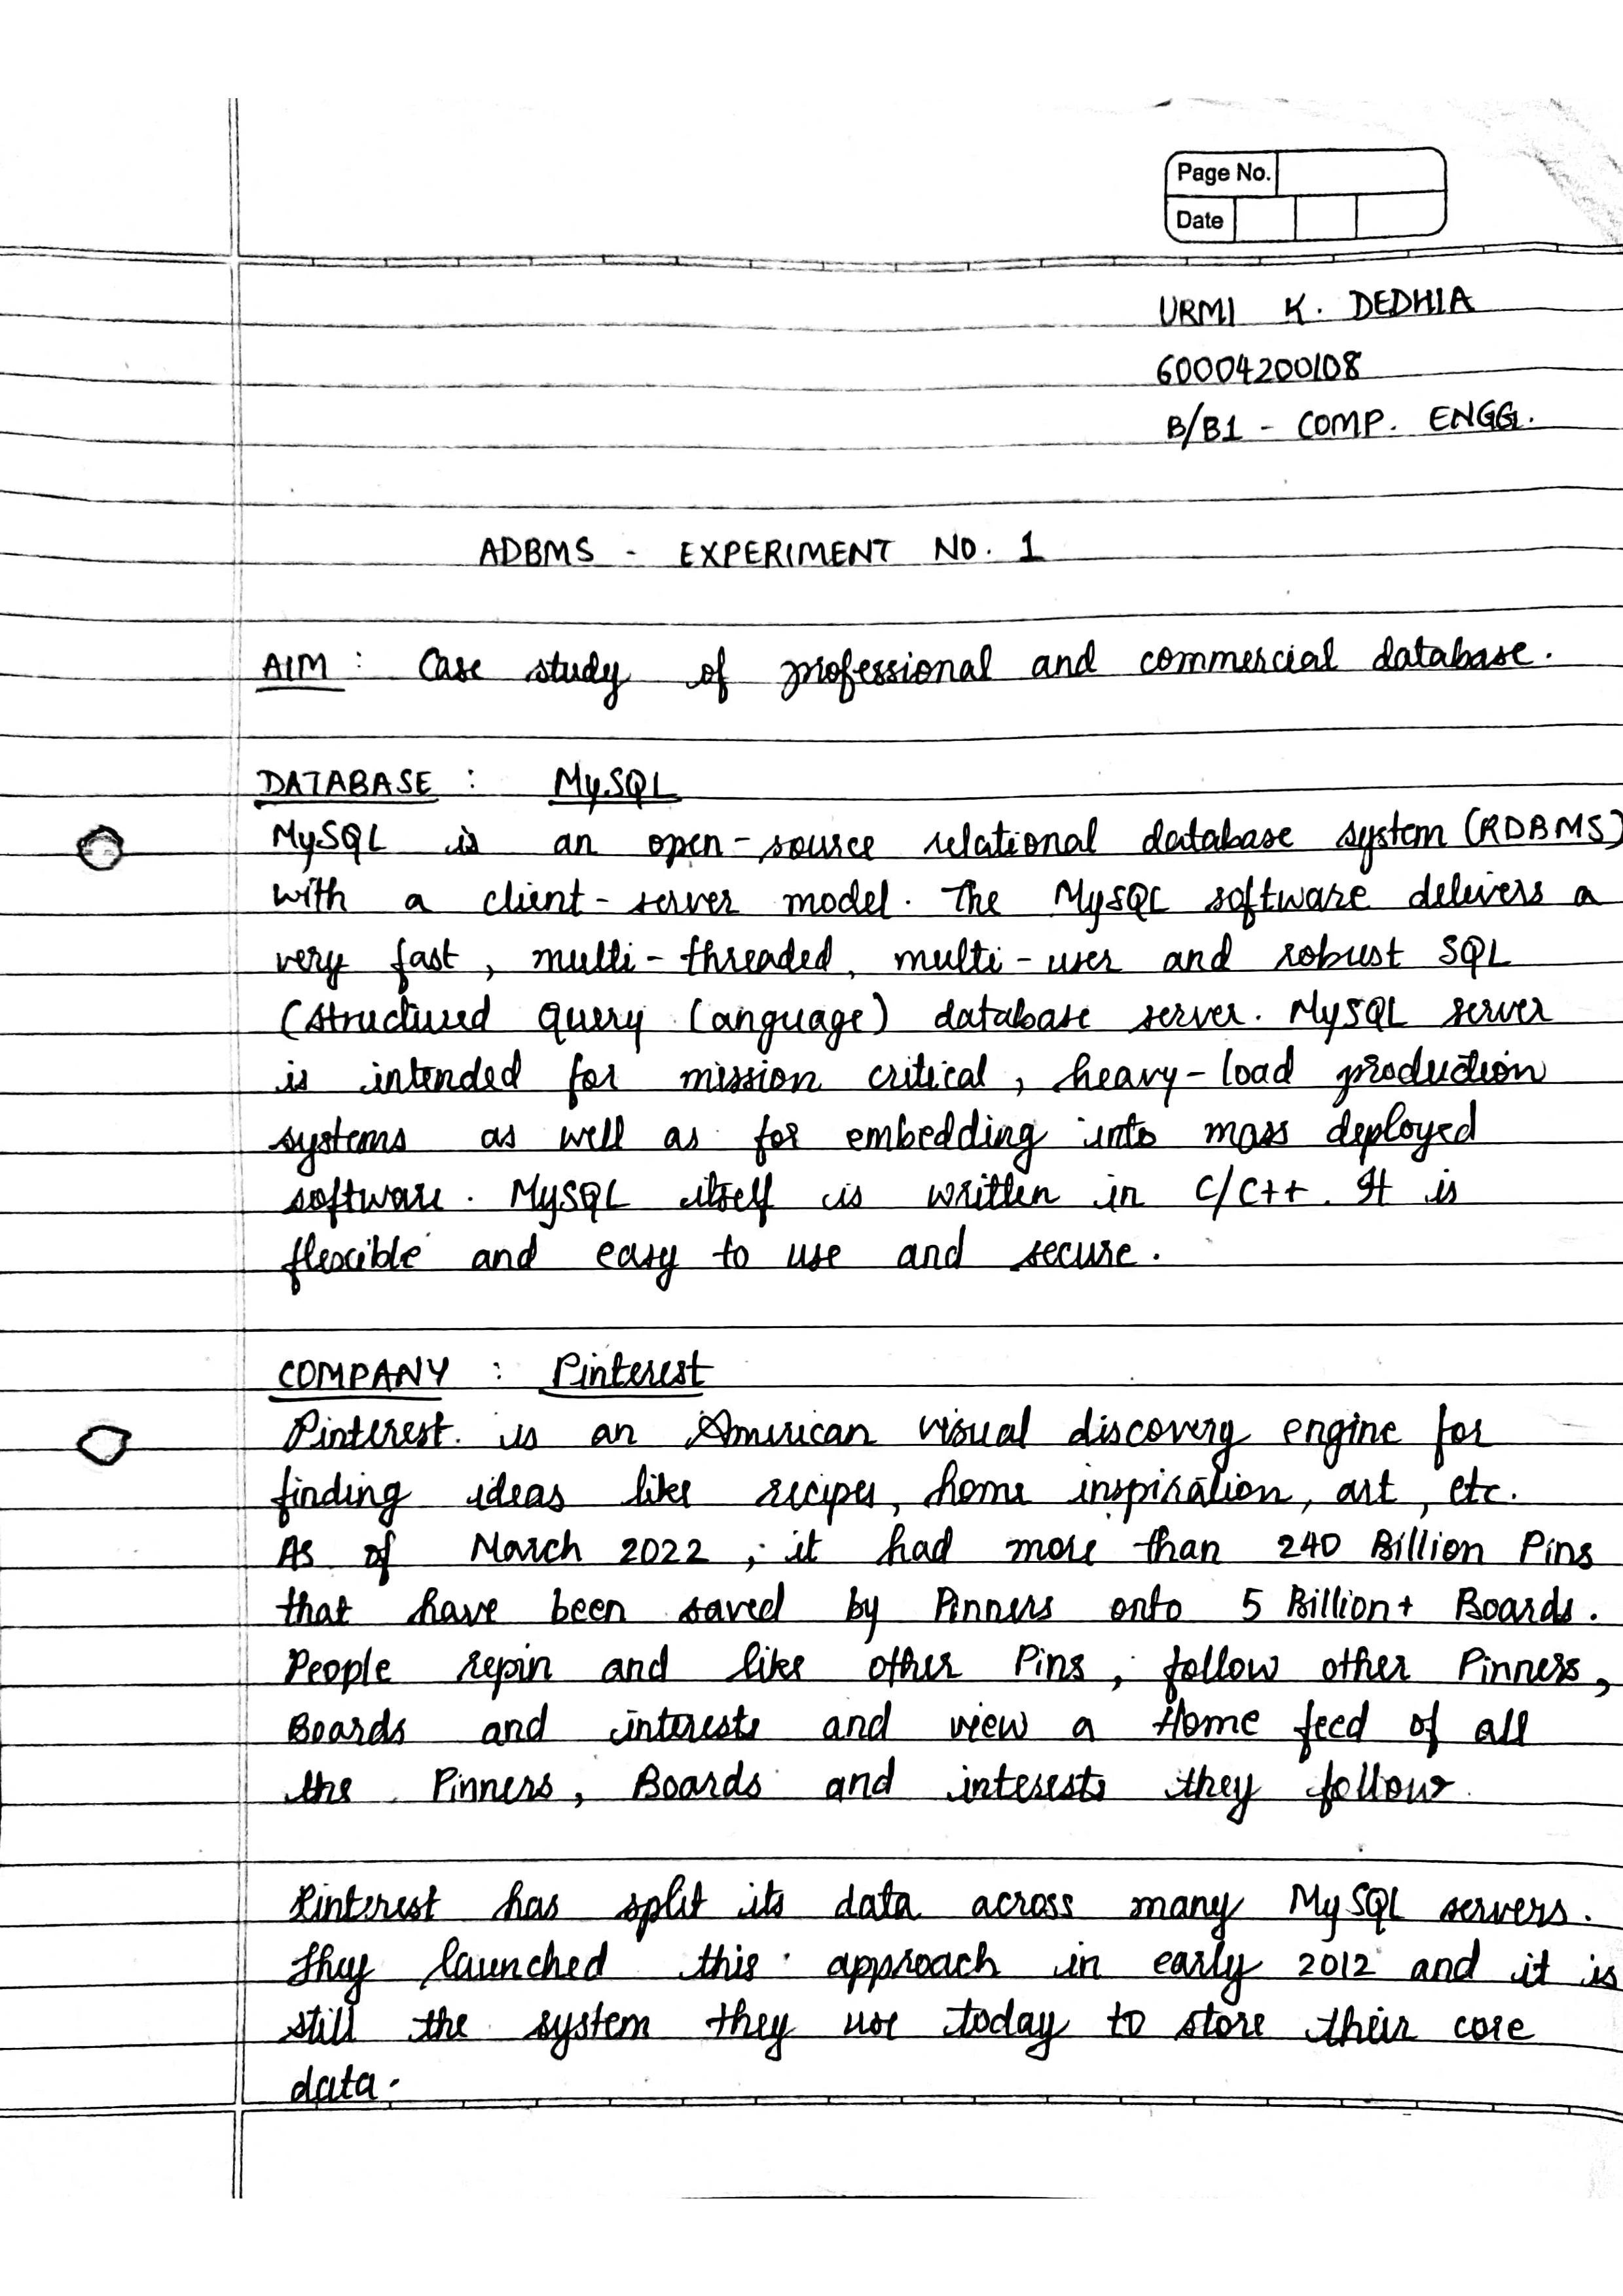 Page No.
Date
URMI K. DEDHIA
60004200108
B/B1 - COMP. ENGG.
ADBMS - EXPERIMENT NO. 1
AIM : Case study of professional and commercial database.
DATABASE : MySQL
MySQL is an open-source relational database system (RDBMS)
with a client-server model. The MySQL software delivers a
very fast, multi-threaded, multi-user and robust SQL
(Structured Query Language) database server. MySQL server
is intended for mission critical, heavy-load production
systems as well as for embedding into mass deployed
software. MySQL itself is written in C/C++. It is
flexible and easy to use and secure.
COMPANY : Pinterest
Pinterest is an American visual discovery engine for
finding ideas like recipes, home inspiration, art, etc.
As of March 2022, it had more than 240 Billion Pins
that have been saved by Pinners onto 5 Billion+ Boards.
People repin and like other Pins, follow other Pinners,
Boards and interests and view a Home feed of all
the Pinners, Boards and interests they follow.
Pinterest has split its data across many MySQL servers.
They launched this approach in early 2012 and it is
still the system they use today to store their core
data.